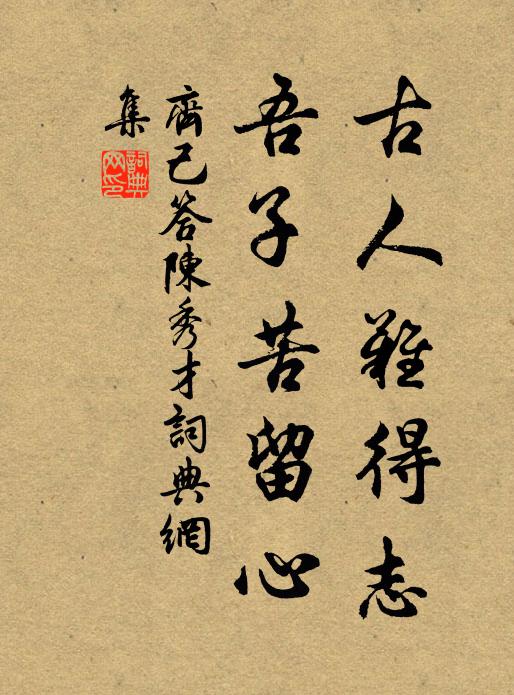 古人難得志
吾子苦留心
齊己答陳秀才詞典網
集
詞典
网印